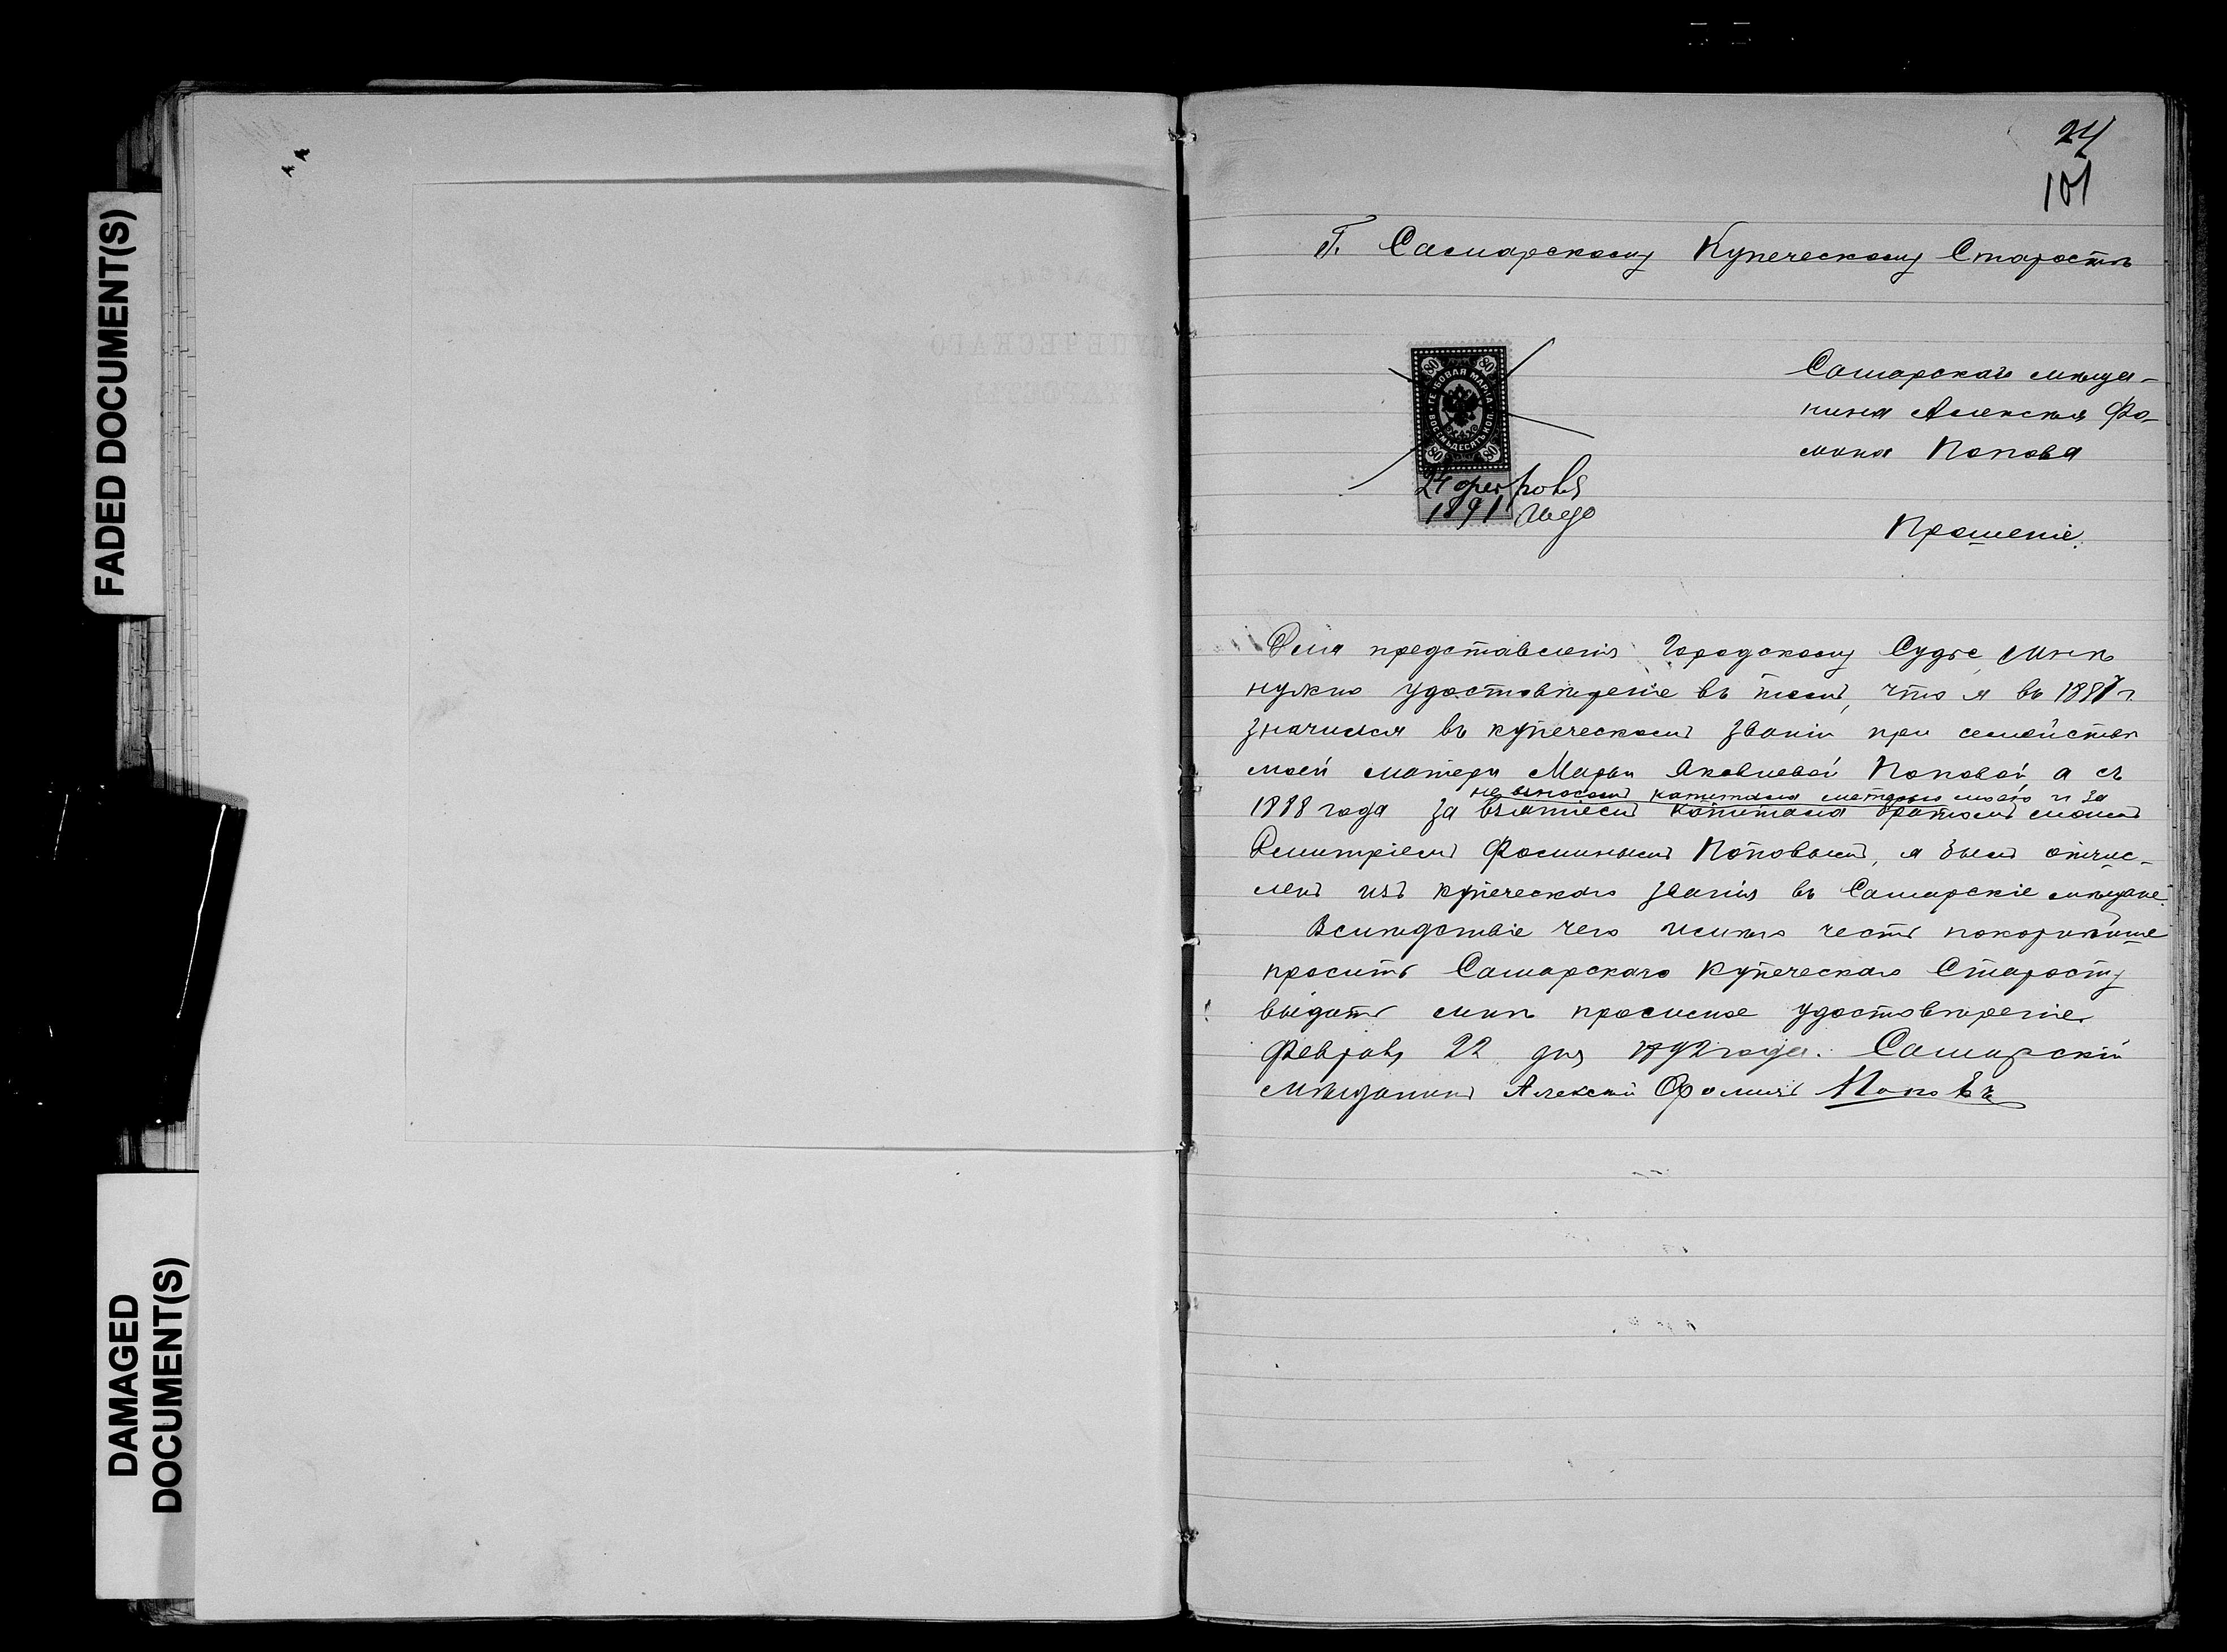 FADED DOCUMENT(S)
DAMAGED
DOCUMENT(S)
24
101
Г. Самарскому Купеческому Старостѣ
80 80
ГЕРБОВАЯ МАРКА
ВОСЕМЬДЕСЯТЪ КОП.
80 80
1891
Самарскаго мѣща-
нина Алексѣя Фо-
мина Попова
Прошеніе.
Для представленія Городскому Судьѣ мнѣ
нужно удостовѣреніе въ томъ, что я въ 1887 г.
значился въ купеческомъ званіи при семействѣ
моей матери Марьи Яковлевой Поповой а съ
не взносомъ капитала матерью моею и за
1888 года за взятіемъ капитала братомъ моимъ
Дмитріемъ Фоминымъ Поповымъ, я былъ отчис-
ленъ изъ купеческаго званія въ Самарскіе мѣщане.
Вслѣдствіе чего имѣю честь покорнѣйше
просить Самарскаго Купеческаго Старосту
выдать мнѣ просимое удостовѣреніе.
Февраля 22 дня 1892 года. Самарскій
мѣщанинъ Алексѣй Фомичъ Поповъ